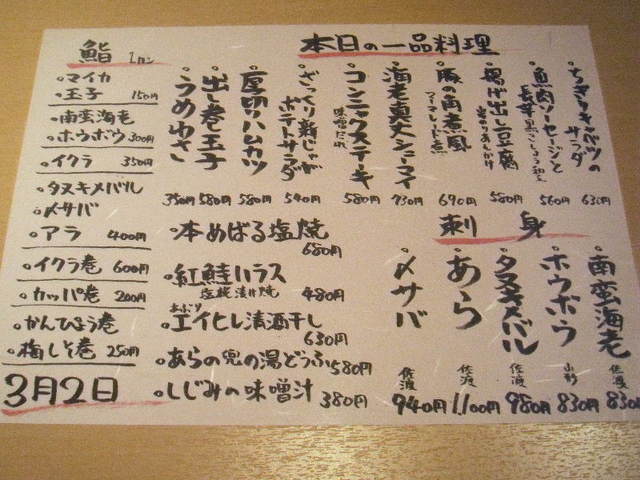 本日の一品料理
ちぎりキャベツの
サラダ
630円
魚肉ソーセージと
560円
揚げ出し豆腐
580円
豚の角煮風
690円
海老真丈シューマイ
730円
コンニャクステーキ
580円
ざっくり新じゃが
ポテトサラダ
540円
厚切りハムカツ
580円
出し巻玉子
580円
うめわさ
350円
本めばる塩焼
680円
紅鮭ハラス
480円
あぶり
エイヒレ清酒干し
630円
あらの兜の湯どうふ580円
しじみの味噌汁 380円
刺身
南蛮海老
佐渡
830円
ホウボウ
山形
830円
タヌキメバル
佐渡
980円
あら
佐渡
1,100円
〆サバ
佐渡
940円
鮨 1カン
マイカ
玉子 150円
南蛮海老
ホウボウ 300円
イクラ 350円
タヌキメバル
〆サバ
アラ 400円
イクラ巻 600円
カッパ巻 200円
かんぴょう巻
梅しそ巻 250円
3月2日